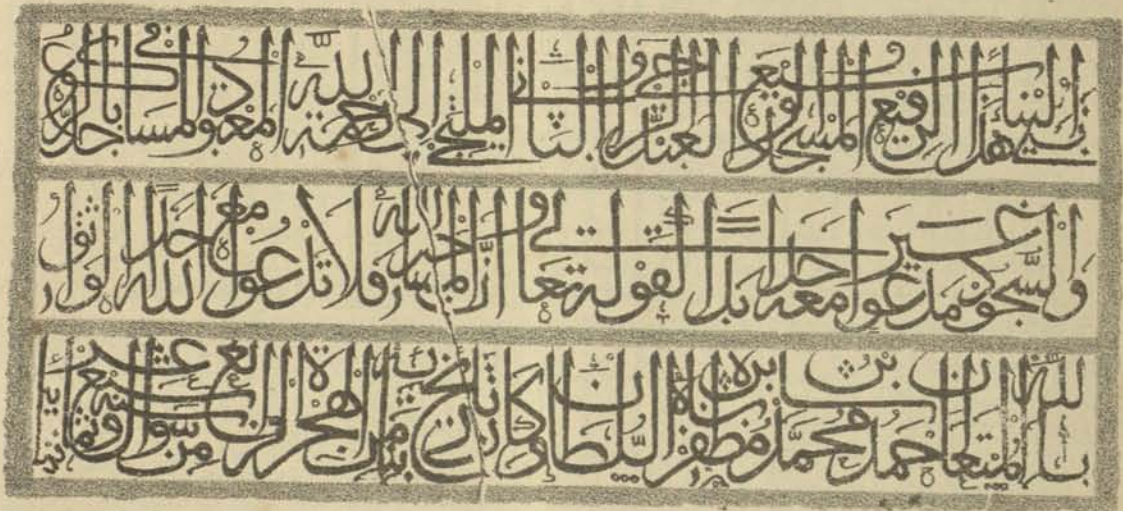 بنى هذا البناء الرفيع والمسجد الوسيع العبد الراجي والباني الملتجي الى رحمة الله المعبود في المساجد بالركوع
والسجود من غير معه احدا بل لقوله تعالى وان المساجد لله فلا تدعوا مع الله احدا الواثق
بالله المستعان احمد بن محمد بن مظفر شاه السلطان وكان تاريخ من الهجرة الرابع من شوال سبع عشر وثمانمائة